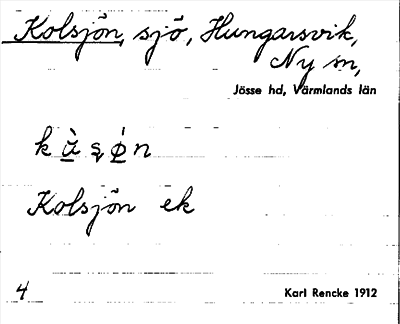 Kolsjön, sjö, Hungarsvik,
Ny sn,
Jösse hd, Värmlands län
k ὰ ʂ ǿ n
Kolsjön ek
4
Karl Rencke 1912